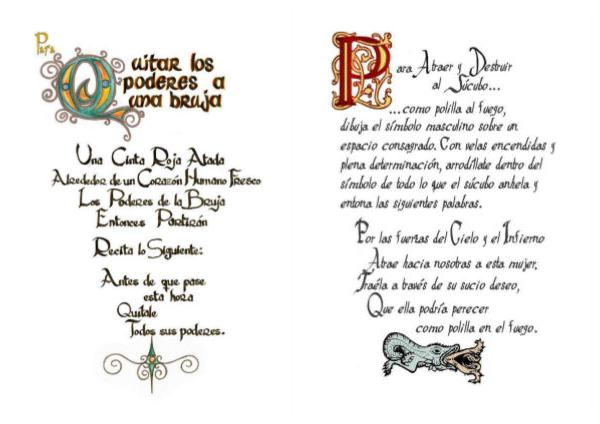 Para
Quitar los
poderes a
una bruja
Una Cinta Roja Atada
Alrededor de un Corazón Humano Fresco
Los Poderes de la Bruja
Entonces Partirán
Recita lo Siguiente:
Antes de que pase
esta hora
Quítale
Todos sus poderes.
Para Atraer y Destruir
al Súcubo...
...como polilla al fuego,
dibuja el símbolo masculino sobre un
espacio consagrado. Con velas encendidas y
plena determinación, arrodíllate dentro del
símbolo de todo lo que el súcubo anhela y
entona las siguientes palabras.
Por las fuerzas del Cielo y el Infierno
Atrae hacia nosotras a esta mujer.
Traéla a través de su sucio deseo,
Que ella podría perecer
como polilla en el fuego.